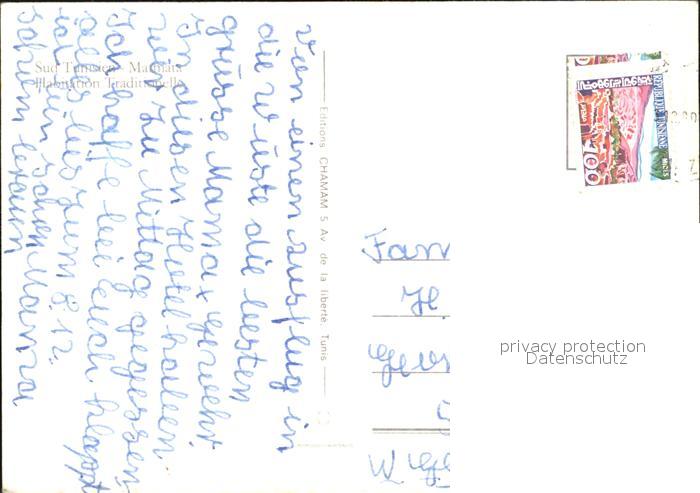 Sud Tunisien - Matmata
Habitation Traditionnelle
Von einen Ausflug in
die Wüste die besten
grüsse Mama x
In diesen Hotel haben
wir zu Mittag gegessen
Ich hoffe bei Euch klappt
alles bis zum 8.12.
schon Mama
Editions CHAMAM 5 Av. de la liberté. Tunis
REPUBLIQUE TUNISIENNE
100
Fam
H
W
privacy protection
Datenschutz